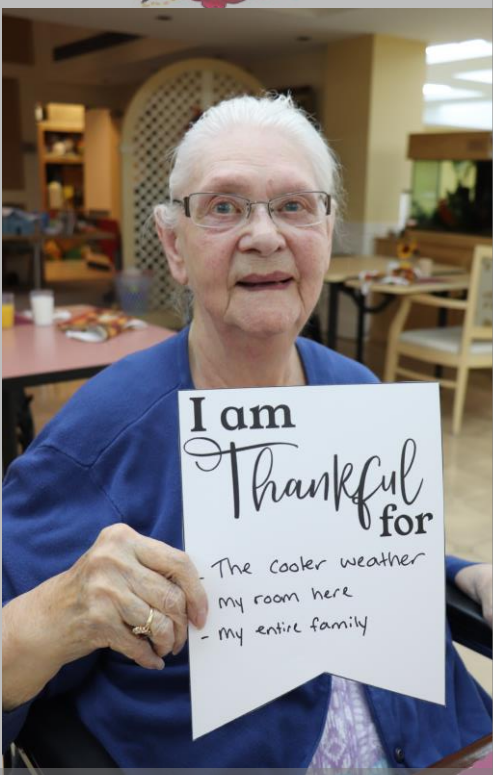 I am
Thankful
for
- The cooler weather
my room here
- my entire family